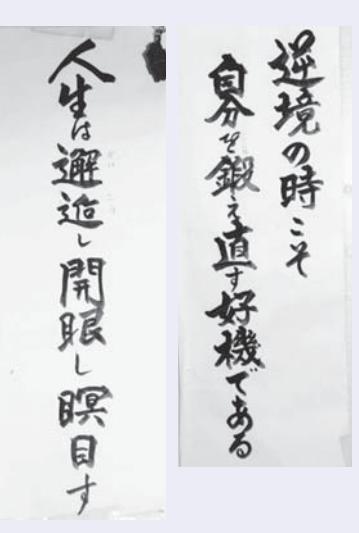 逆境の時こそ
自分を鍛え直す好機である
人生は邂逅し開眼し瞑目す